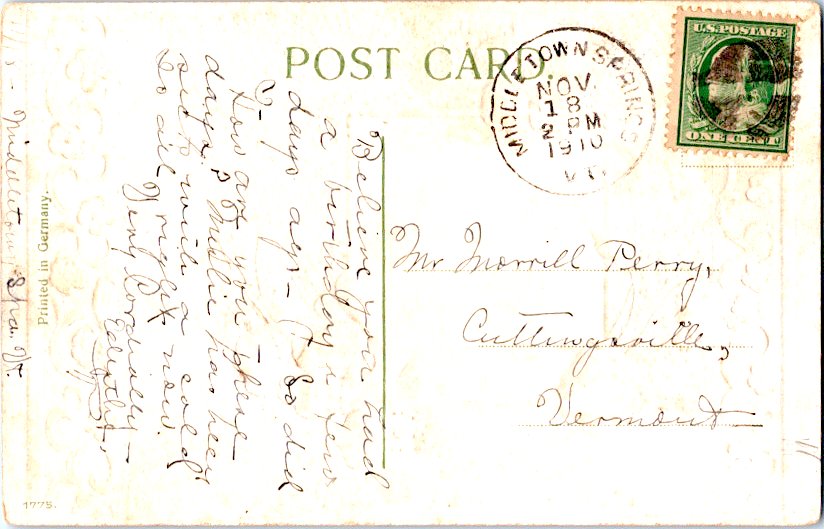 POST CARD.
MIDDLETOWN SPRINGS
NOV.
18
2 PM
1910
VT.
U.S. POSTAGE
ONE CENT
Mr Morrill Perry,
Cuttingsville,
Vermont
Believe you had
a birthday a few
days ago - So did
I-
How are you these
days? Mollie has been
sick with a cold
So all right now.
Very Cordially -
Edythe.
Middletown Spa. Vt.
Printed in Germany.
1775.